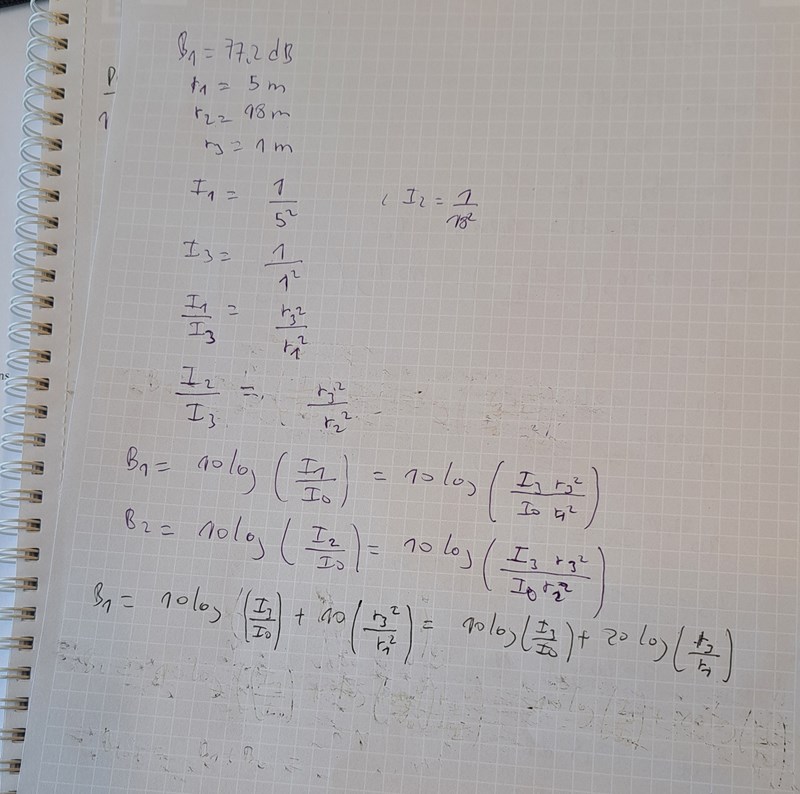 B₁ = 77,2 dB
r₁ = 5 m
r₂ = 18 m
r₃ = 1 m
I₁ = 1/5² I₂ = 1/18²
I₃ = 1/1²
I₁/I₃ = r₃²/r₁²
I₂/I₃ = r₃²/r₂²
B₁ = 10 log (I₁/I₀) = 10 log (I₃ r₃²/I₀ r₁²)
B₂ = 10 log (I₂/I₀) = 10 log (I₃ r₃²/I₀ r₂²)
B₁ = 10 log (I₃/I₀) + 10 (r₃²/r₁²) = 10 log (I₃/I₀) + 20 log (r₃/r₁)